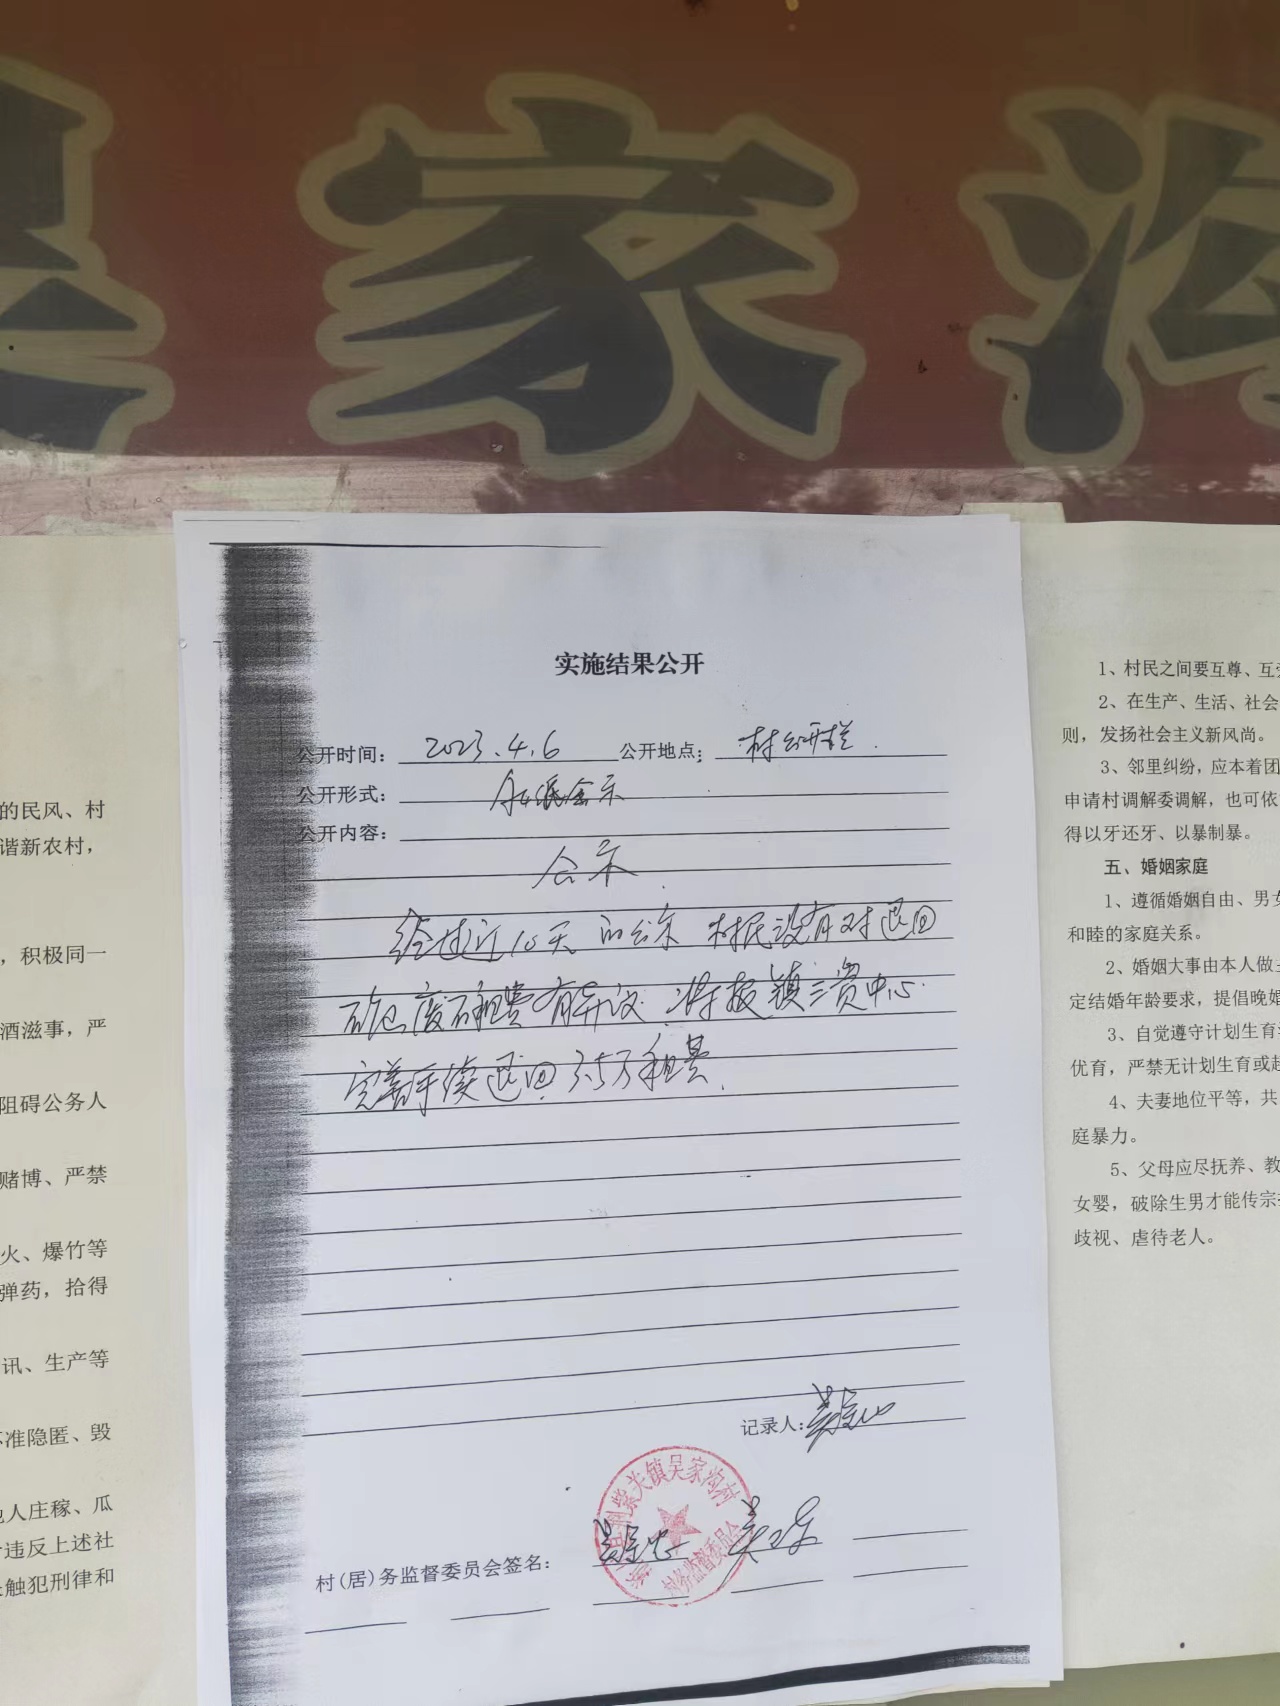 家沟
实施结果公开
公开时间： 2023.4.6 公开地点： 村公开栏.
公开形式： 纸公示
公开内容：
公示.
经过近10天的公示 村民没有对退回
石包废石租费有异议.将报镇三资中心.
完善手续退回3.5万租费.
记录人：
村(居)务监督委员会签名：
荆紫关镇吴家沟村
村务监督委员会
的民风、村
谐新农村，
，积极同一
酒滋事，严
阻碍公务人
赌博、严禁
火、爆竹等
弹药，拾得
讯、生产等
准隐匿、毁
人庄稼、瓜
违反上述社
触犯刑律和
1、村民之间要互尊、互
2、在生产、生活、社会
则，发扬社会主义新风尚。
3、邻里纠纷，应本着团
申请村调解委调解，也可依
得以牙还牙、以暴制暴。
五、婚姻家庭
1、遵循婚姻自由、男女
和睦的家庭关系。
2、婚姻大事由本人做
定结婚年龄要求，提倡晚婚
3、自觉遵守计划生育
优育，严禁无计划生育或
4、夫妻地位平等，共
庭暴力。
5、父母应尽抚养、教
女婴，破除生男才能传宗
歧视、虐待老人。